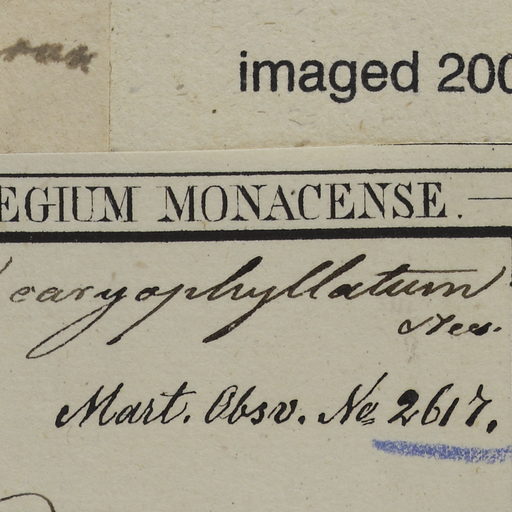 imaged 200
EGIUM MONACENSE.
caryophyllatum
Nees.
Mart. Obsv. No 2617.